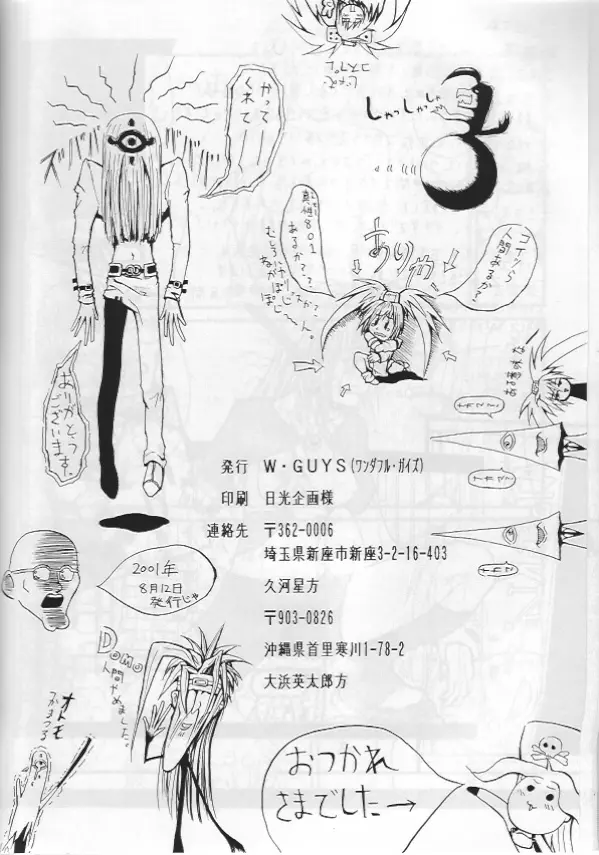 じゃで
コスプレ
かって
くれて
しゃっしゃしゃ
コイツら
人間あるか？
真性801
あるか？？
ありゃ
ありがとう
ございます。
発行 W・GUYS(ワンダフル・ガイズ)
印刷 日光企画様
連絡先 〒362-0006
埼玉県新座市新座3-2-16-403
久河星方
〒903-0826
沖縄県首里寒川1-78-2
大浜英太郎方
2001年
8月12日
発行じゃ
Domo
人間やめました。
オトモ
つかまつる
おつかれ
さまでした→